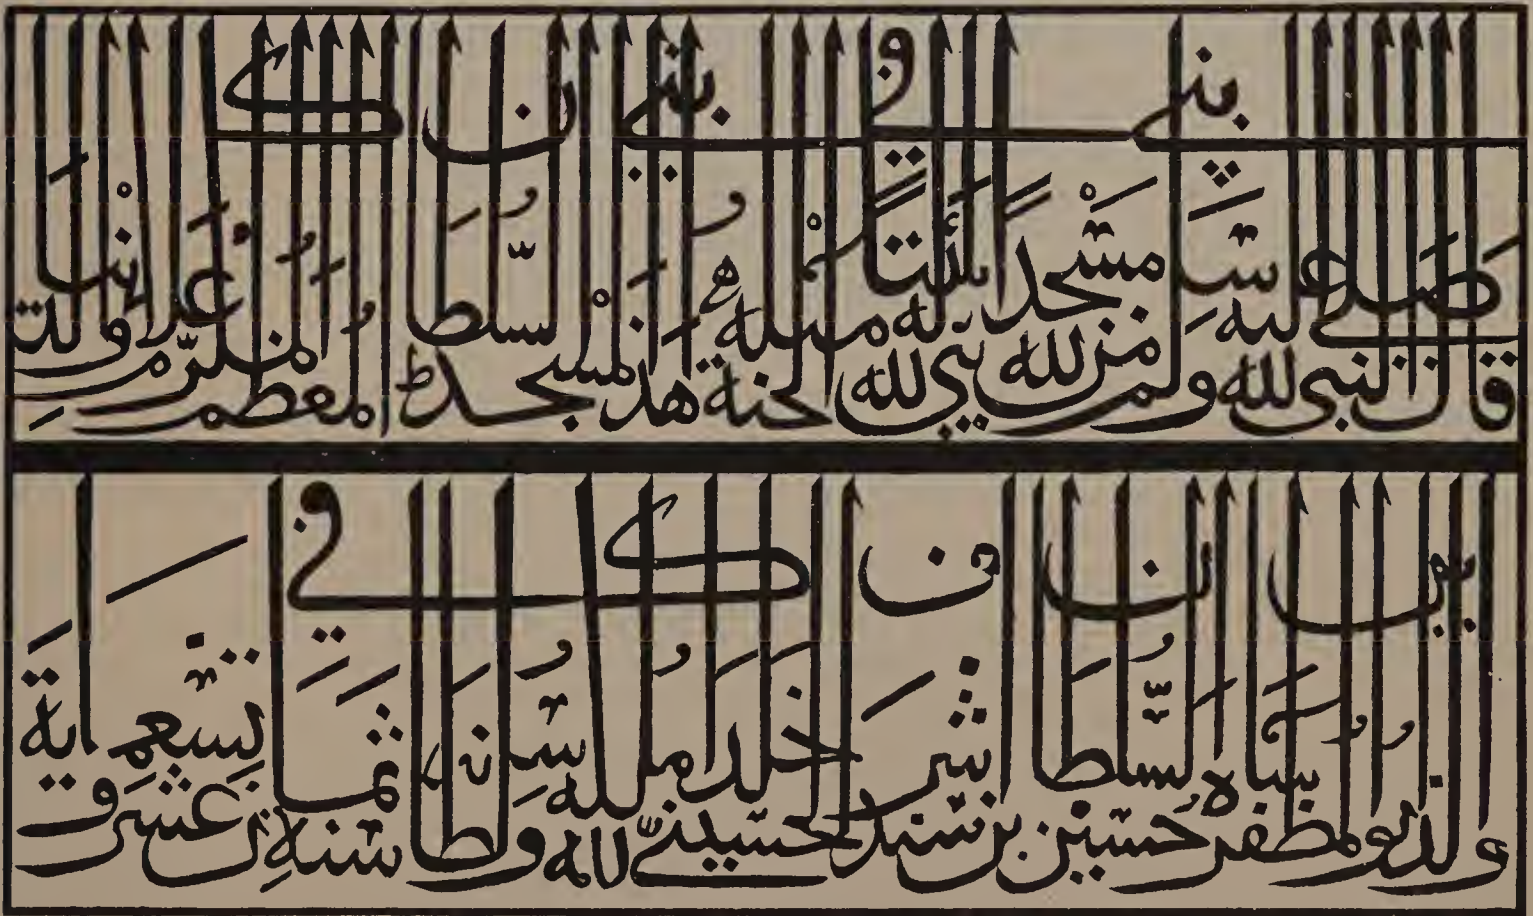 قال النبي صلى الله عليه وسلم من بنى لله مسجدا يبني الله له بيتا مثله في الجنة بنى هذا المسجد السلطان المعظم المكرم علاء الدنيا
والدين ابو المظفر حسين شاه السلطان بن سيد اشرف الحسيني خلد الله ملكه وسلطانه في سنة ثمان عشر وتسعماية